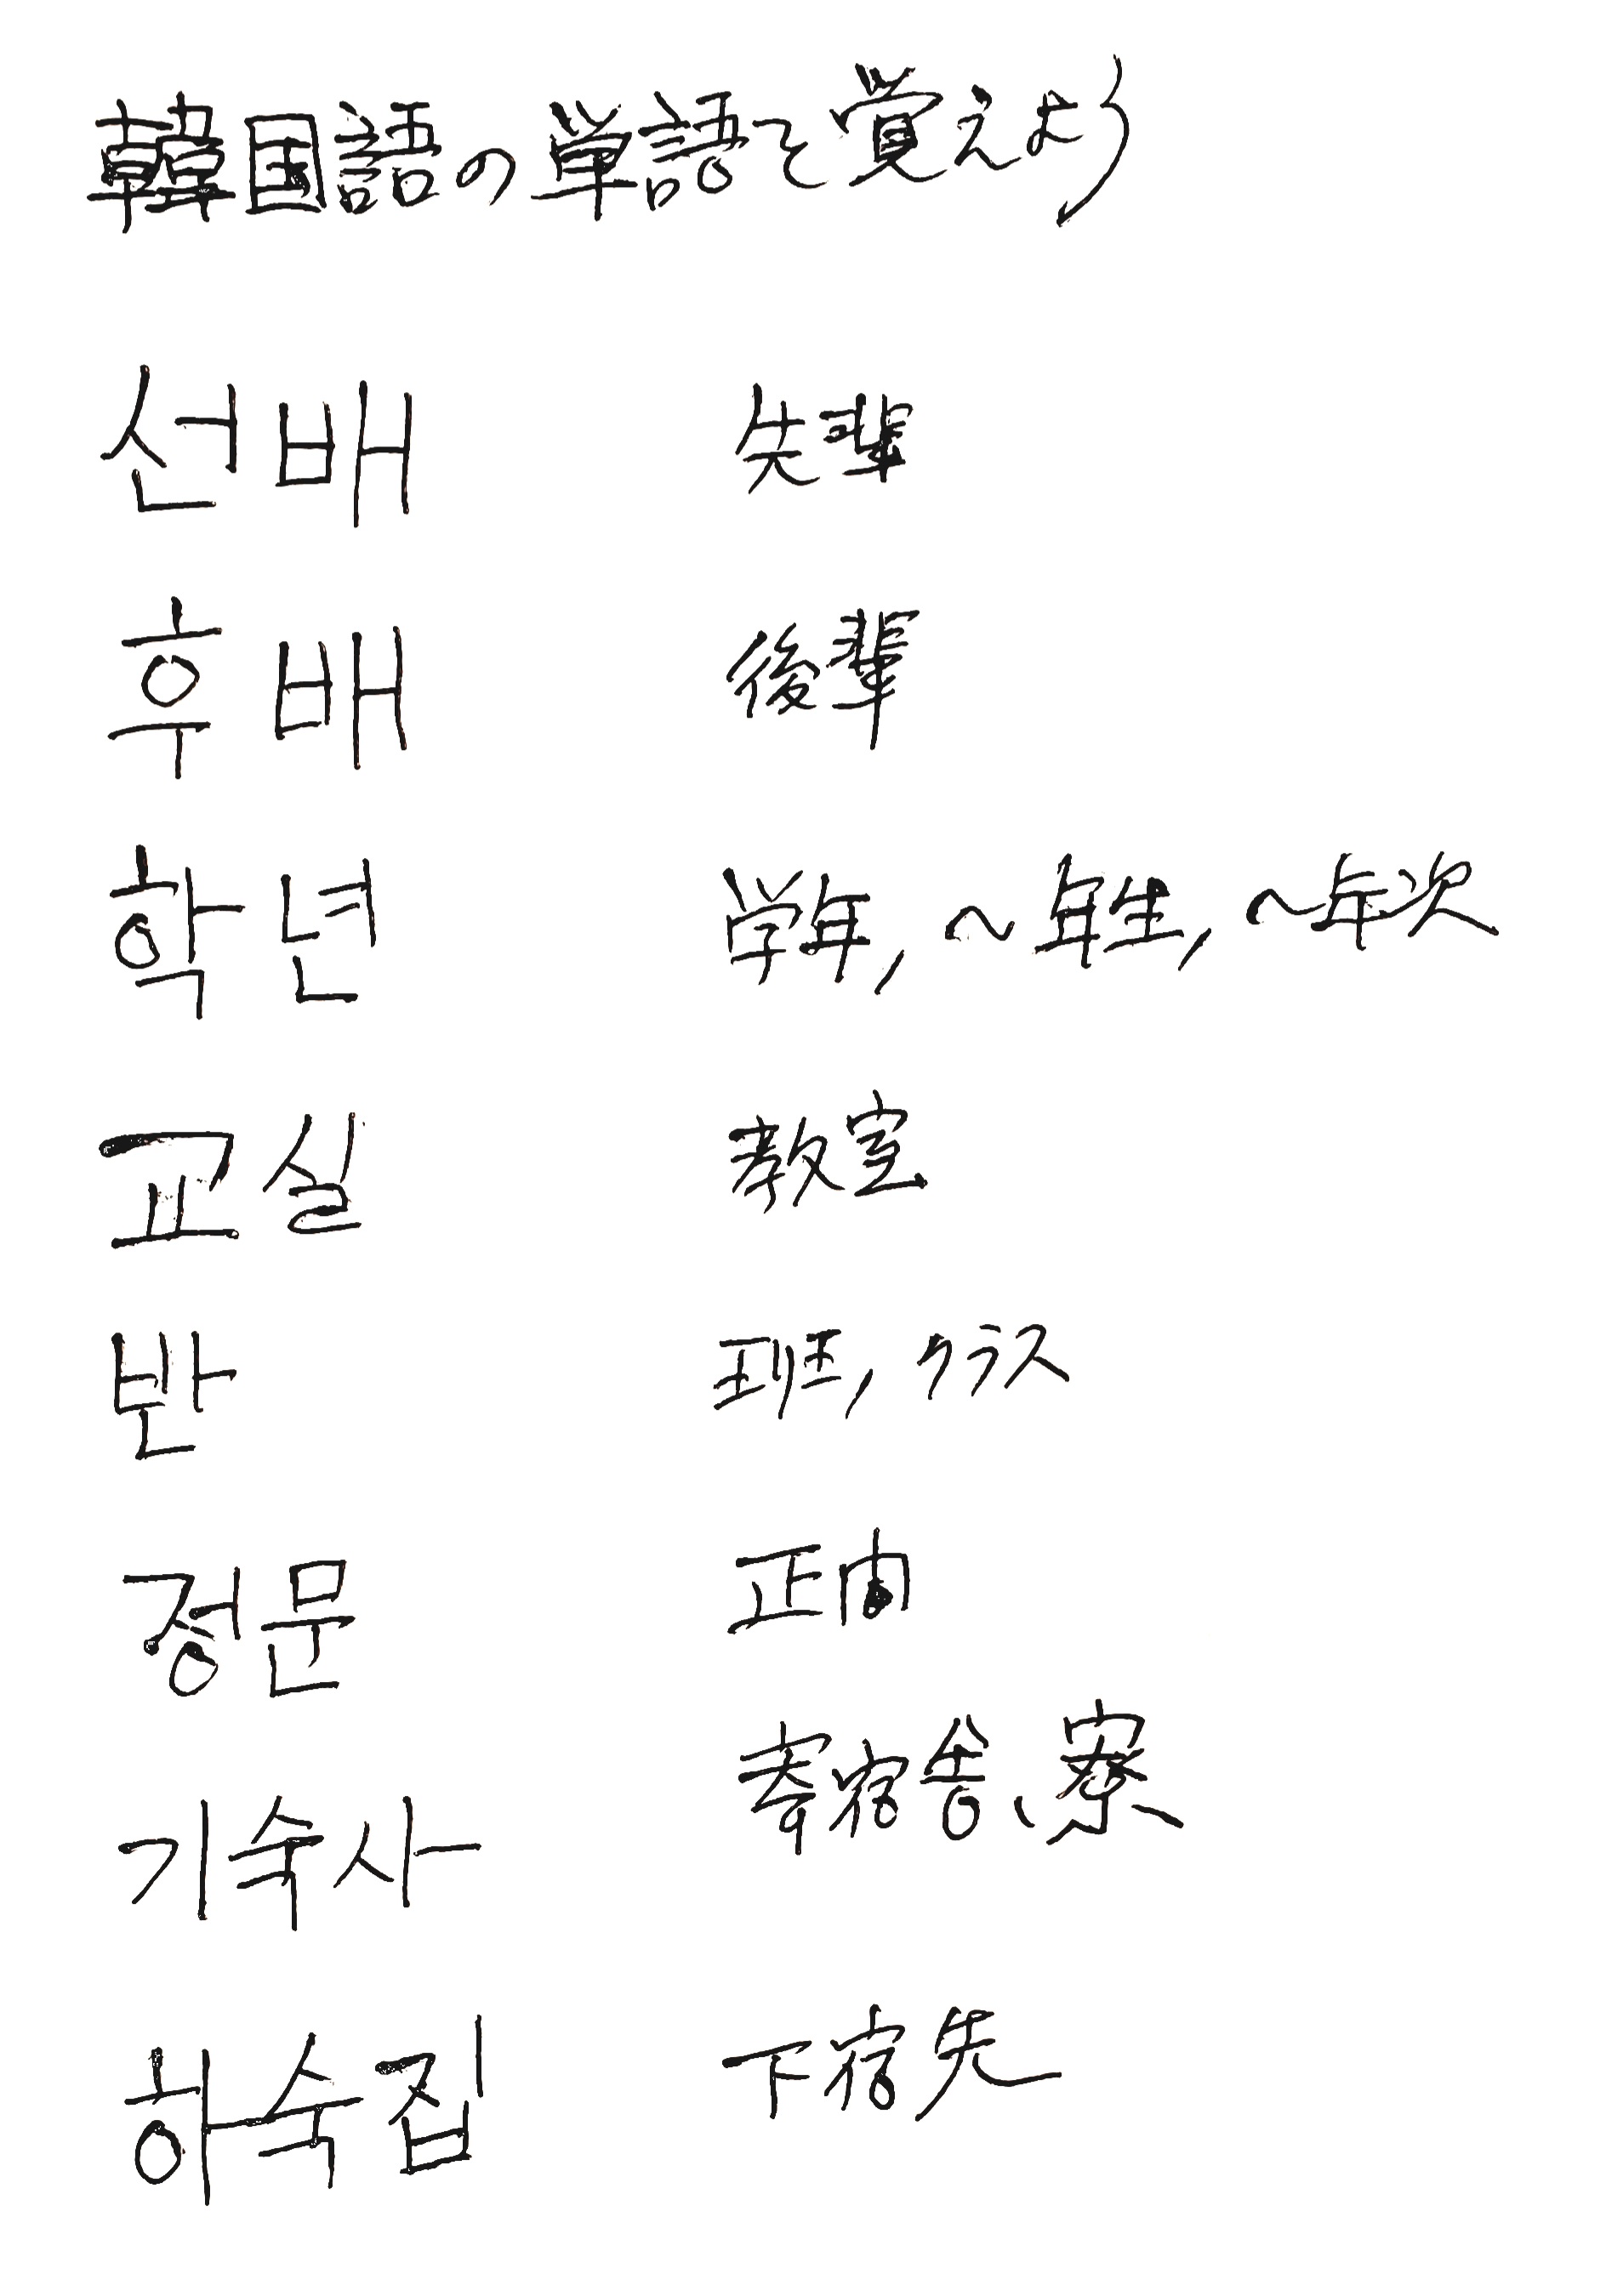 韓国語の単語を覚えよう
선배 先輩
후배 後輩
학년 学年, ~年生, ~年次
교실 教室
반 班, クラス
정문 正门
기숙사 寄宿舎、寮
하숙집 下宿先